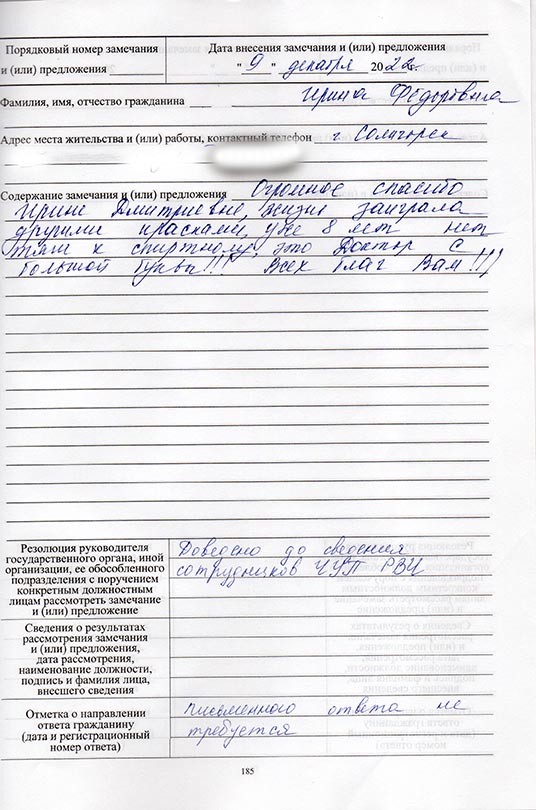 Порядковый номер замечания
и (или) предложения
Дата внесения замечания и (или) предложения
" 9 " декабря 2022г.
Фамилия, имя, отчество гражданина Ирина Фёдоровна
Адрес места жительства и (или) работы, контактный телефон г Солигорск
Содержание замечания и (или) предложения Огромное спасибо
Ирине Дмитриевне, жизнь заиграла
другими красками, уже 8 лет нет
тяги к спиртному, это Доктор с
большой буквы!!! Всех благ Вам!!!
Резолюция руководителя
государственного органа, иной
организации, ее обособленного
подразделения с поручением
конкретным должностным
лицам рассмотреть замечание
и (или) предложение
Доведено до сведения
сотрудников ЧУП РВЦ
Сведения о результатах
рассмотрения замечания
и (или) предложения,
дата рассмотрения,
наименование должности,
подпись и фамилия лица,
внесшего сведения
Отметка о направлении
ответа гражданину
(дата и регистрационный
номер ответа)
письменного ответа не
требуется
185